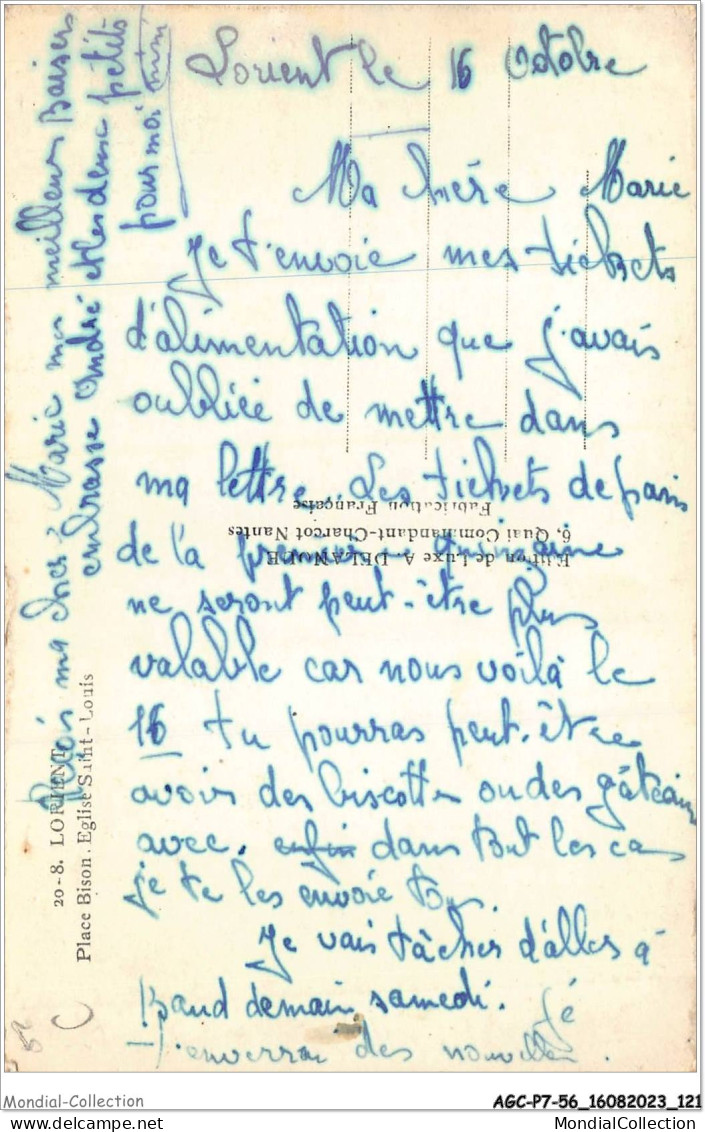 Lorient le 16 Octobre
Ma chère Marie
Je t'envoie mes tickets
d'alimentation que j'avais
oubliée de mettre dans
ma lettre. Les tickets de pain
de la première quinzaine
ne seront peut-être plus
valable car nous voilà le
16 tu pourras peut-être
avoir des biscottes ou des gâteaux
avec. enfin dans tout les cas
je te les envoie tous
Je vais tâcher d'aller à
Baud demain samedi. Je
t'enverrai des nouvelles.
Reçois ma chère Marie mes meilleurs Baisers
embrasse André et les deux petits
pour moi
20-8. LORIENT
Place Bisson. Eglise Saint-Louis
Edition de Luxe A. DELANOUE
6, Quai Commandant-Charcot Nantes
Fabrication Française
Mondial-Collection
AGC-P7-56_16082023_121
MondialCollection